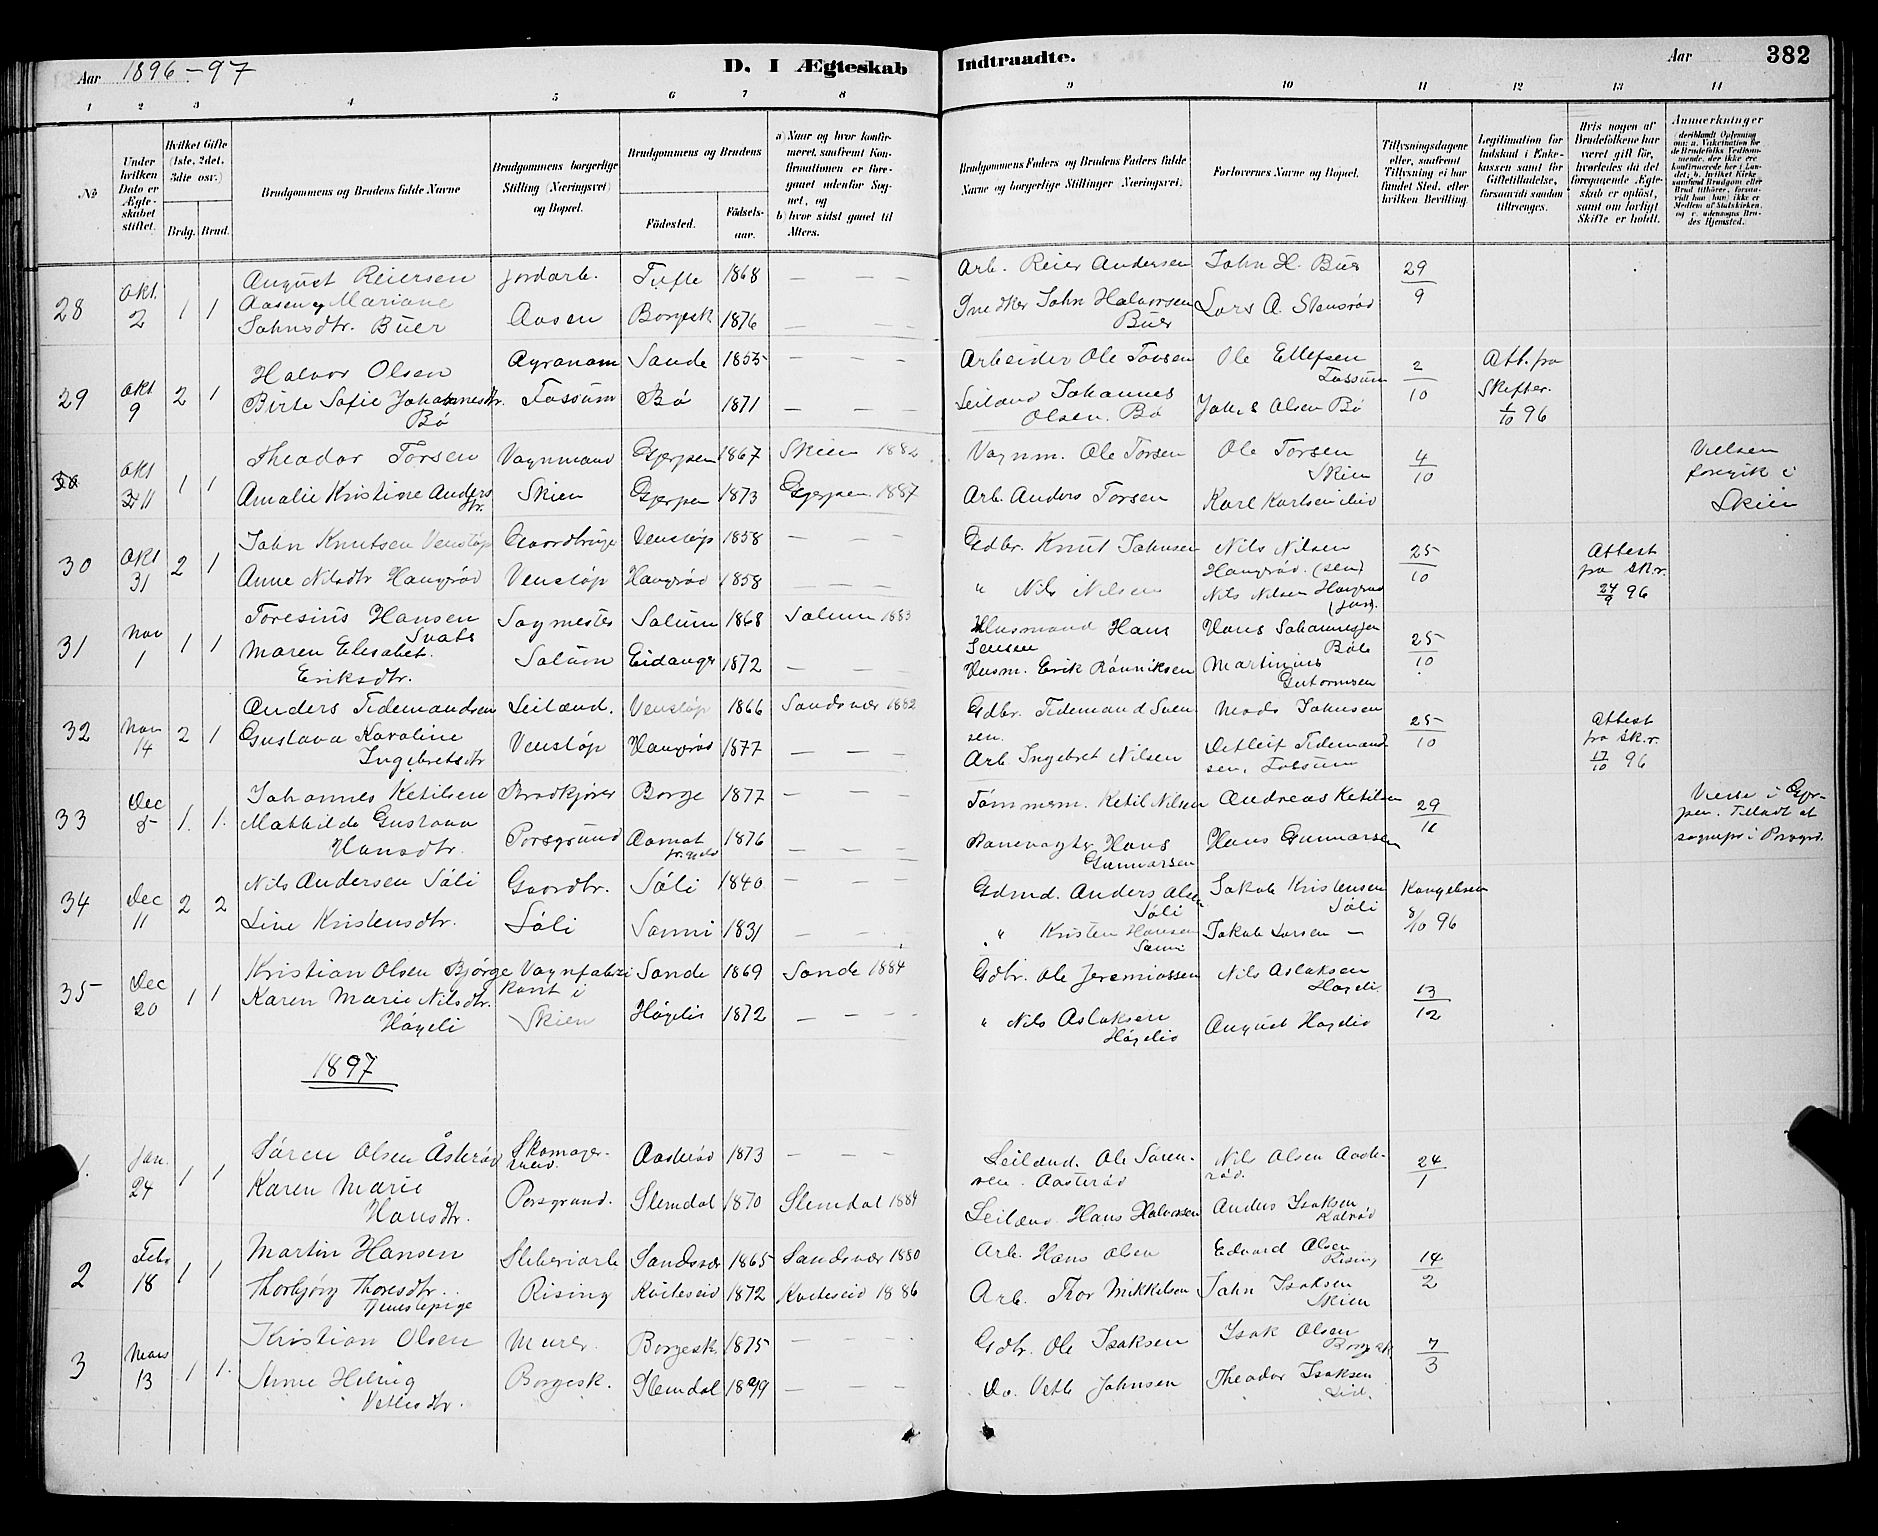 Aar 1896-97
D. I Ægteskab Indtraadte.
Aar
382
1 2 3 4 5 6 7 8 9 10 11 12 13 14
No
Under hvilken Dato er Ægteskabet stiftet.
Hvilket Gifte (1ste, 2det, 3die osv.)
Brdg. Brud.
Brudgommens og Brudens fulde Navne
Brudgommens borgerlige Stilling (Næringsvei) og Bopæl.
Brudgommens og Brudens
Födested.
Födsels-aar.
a) Naar og hvor konfirmeret, saafremt Konfirmationen er foregaaet udenfor Sognet, og
b) hvor sidst gaaet til Alters.
Brudgommens Faders og Brudens Faders fulde Navne og borgerlige Stillinger Næringsvei.
Forlovernes Navne og Bopæl.
Tillysningsdagene eller, saafremt Tillysning ei har fundet Sted, efter hvilken Bevilling.
Legitimation for Indskud i Enkekassen samt for Giftetilladelse, forsaavidt saadan tiltrænges.
Hvis nogen af Brudefolkene har været gift för, hvorledes da det foregaaende Ægteskab er oplöst, samt om lovligt Skifte er holdt.
Anmærkninger
28 Okt. 2 1 1
August Reiersen Aasen og Mariane Johnsdtr. Buer
Jordarb. Aasen
Tufte 1868 — — —
Borgesk 1876 — — —
Arb. Reier Andersen John H. Buer 29/9
Gmedker John Halvorsen Buer Lars A. Stensrød
29 Okt 9 2 1
Halvor Olsen
Birte Sofie Johannesdtr. Bö
Fossum
Sande 1855 — — —
Bö 1871 — — —
Arbeider Ole Torsen Ole Ellefsen Fossum 2/10
Leilænd Johannes Olsen. Bö Johs Olsen Bö
Att. fra Skifter. 1/10 96
Okt 11 1 1
Theodor Torsen
Amalie Kristine Andersdtr.
Vognmand Skien
Gjerpen 1867 Skien 1882
Gjerpen 1873 Gjerpen 1887
Vognm. Ole Torsen Ole Torsen Skien 4/10
Arb. Anders Torsen Karl Karlsen ibid
Vielsen foregik i Skien
30 Okt 31 2 1
John Knutsen Venstøp
Anne Nilsdtr Haugrød
Gaardbruger Venstøp
Venstøp 1858 — — —
Haugrød 1858 — — —
Gdbr. Knut Johnsen Nils Nilsen Haugrød. (sen) 25/10
" Nils Nilsen Nils Nilsen Haugrød (jun).
Attest fra Sk.r. 24/9 96
31 Nov 1 1 1
Toresius Hansen
Maren Elisabet Eriksdtr.
Sagmester Solum
Solum 1868 Solum 1883
Eidanger 1872 — — —
Husmand Hans Jensen Hans Johannesen Böle 25/10
Husm. Erik Rønniksen Martinius Gutormsen
32 Nov 14 2 1
Anders Tidemandsen
Gustava Karoline Ingebretsdtr
Leilænd. Venstøp
Venstøp 1866 Sandsvær 1882
Haugrød 1877 — — —
Gdbr. Tidemand Svensen. Mads Johnsen 25/10
Arb. Ingebret Nilsen Detleif Tidemandsen, Fossum
Attest fra Sk.r. 17/10 96
33 Dec 5 1. 1.
Johannes Ketilsen
Mathilde Gustava Hansdtr.
Porsgrund
Borge 1877 — — —
Aamot 1876 — — —
Tømmerm. Ketil Nilsen Andreas Ketilsen 29/11
Banevogter Hans Gunnarsen Hans Gunnarsen
34 Dec 11 2 2
Nils Andersen Sóli
Line Kristensdtr.
Gaardbr. Sóli
Sóli 1840 — — —
Sanni 1831 — — —
Gdmd. Anders Olsen Sóli Jakob Kristensen Sóli
" Kristen Hansen Sanni Jakob Larsen —
Kongebrev 8/10 96
35 Dec 20 1 1
Kristian Olsen Bjørge
Karen Marie Nilsdtr. Høgeli
Vognfabrikant i Skien
Sande 1869 Sande 1884
Høgeli 1872 — — —
Gdbr. Ole Jeremiassen Nils Aslaksen Høgeli. 13/12
" Nils Aslaksen Høgeli August Høgeli
1897
1. Jan. 24 1 1
Sören Olsen Åsterød
Karen Marie Hansdtr.
Skomagersvend. Porsgrund.
Aasterød 1873 — — —
Slemdal 1870 Slemdal 1884
Leilænd. Ole Sörensen. Aasterød Nils Olsen Aasterød. 24/1
Leilænd Hans Halvorsen Anders Isaksen
2 Feb 18 1 1
Martin Hansen
Thorbjörg Thoresdtr. Tjenestepige
Sliberiarb Rising
Sandsvær 1865 Sandsvær 1880
Kviteseid 1872 Kviteseid 1886
Arb. Hans Olsen Edvard Olsen Rising 14/2
Arb. Thor Mikkelsen John Isaksen Skien
3 Mars 13 1 1.
Kristian Olsen
Anne Helvig Vetlesdtr.
Murer. Borgesk.
Borgesk. 1875 — — —
Slemdal — — —
Gdbr. Ole Isaksen Isak Olsen Borgesk 7/3
Do. Vetle Johnsen Theodor Isaksen